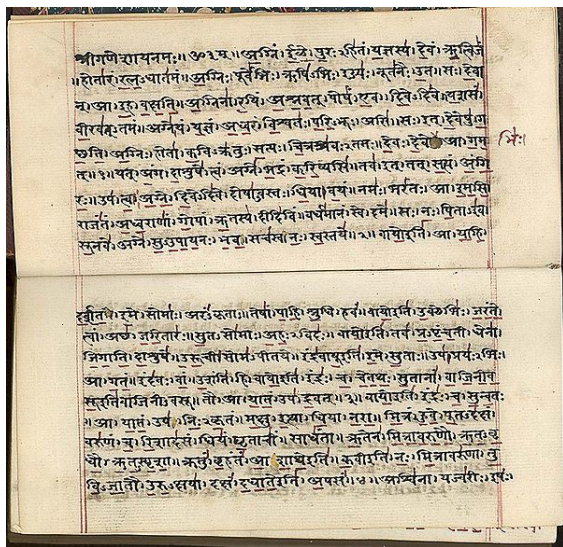 श्रीगणेशायनमः॥ॐ३म्॥अग्निं। ईळे। पुरःऽहितं। यज्ञस्य। देवं। ऋत्विजं
।होतारं। रत्नऽधातमं। अग्निः। पूर्वेभिः। ऋषिऽभिः। ईड्यः। नूतनैः। उत। सः। देवा
न्। आ। इह। वक्षति। अग्निना। रयिं। अश्नवत्। पोषं। एव। दिवेऽदिवे। यशसं।
वीरवत्ऽतमं। अग्ने। यं। यज्ञं। अध्वरं। विश्वतः। परिऽभूः। असि। सः। इत्। देवेषु। ग
च्छति। अग्निः। होता। कविऽक्रतुः। सत्यः। चित्रश्रवःऽतमः। देवः। देवे। आ। गम
भिः।
त्॥१॥यत्। अंग। दाशुषे। त्वं। अग्ने। भद्रं। करिष्यसि। तव। इत्। तत्। सत्यं। अंगि
रः। उप। त्वा। अग्ने। दिवेऽदिवे। दोषाऽवस्तः। धिया। वयं। नमः। भरंतः। आ। इमसि
राजंतं। अध्वराणां। गोपां। ऋतस्य। दीदिविं। वर्धमानं। स्वे। दमे। सः। नः। पिताऽइव
सूनवे। अग्ने। सुऽउपायनः। भव। सचस्व। नः। स्वस्तये॥२॥वायोइति। आ। याहि।
दर्शत। इमे। सोमाः। अरंऽकृताः। तेषां। पाहि। श्रुधि। हवं। वायोइति। उक्थेभिः। जरंते
त्वां। अच्छ। जरितारः। सुतऽसोमाः। अहःऽविदः। वायोइति। तव। प्रऽपृंचती। धेना।
जिगाति। दाशुषे। उरूची। सोमऽपीतये। इंद्रवायूइति। इमे। सुताः। उप। प्रयःऽभिः।
आ। गतं। इंदवः। वां। उशंति। हि। वायोइति। इंद्रः। च। चेतथः। सुतानां। वाजिनीव
सूइतिवाजिनीवसू। तौ। आ। यातं। उप। द्रवत्॥३॥वायोइति। इंद्रः। च। सुन्वतः
।आ। यातं। उप। निःऽकृतं। मक्षु। इत्था। धिया। नरा। मित्रं। हुवे। पूतऽदक्षं।
वरुणं। च। रिशादसं। धियं। घृताचीं। साधंता। ऋतेन। मित्रावरुणौ। ऋतऽवृ
धौ। ऋतऽस्पृशा। क्रतुं। बृहंतं। आशाथेइति। कवीइति। नः। मित्रावरुणा। तु
विऽजातौ। उरुऽक्षया। दक्षं। दधातेइति। अपसं॥४॥अश्विना। यज्वरीः। इषः।